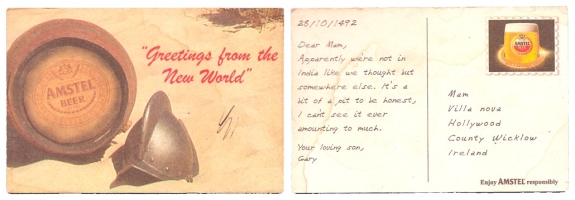 "Greetings from the
New World"
AMSTEL
BEER
25/10/1492
Dear Mam,
Apparently we're not in
India like we thought but
somewhere else. It's a
bit of a pit to be honest,
I can't see it ever
amounting to much.
Your loving son,
Gary
AMSTEL
Mam
Villa nova
Hollywood
County Wicklow
Ireland
Enjoy AMSTEL responsibly